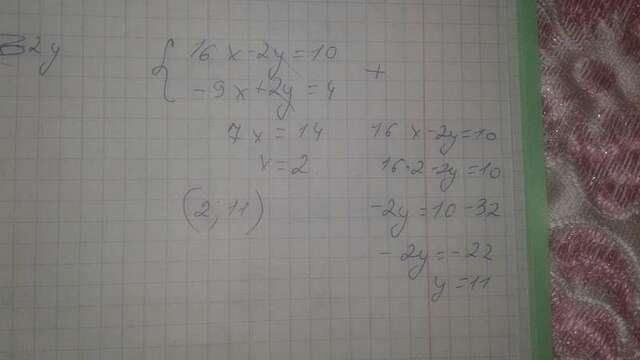 2y
16x-2y=10
-9x+2y=4
+
7x=14
x=2
(2; 11)
16x-2y=10
16·2-2y=10
-2y=10-32
-2y=-22
y=11